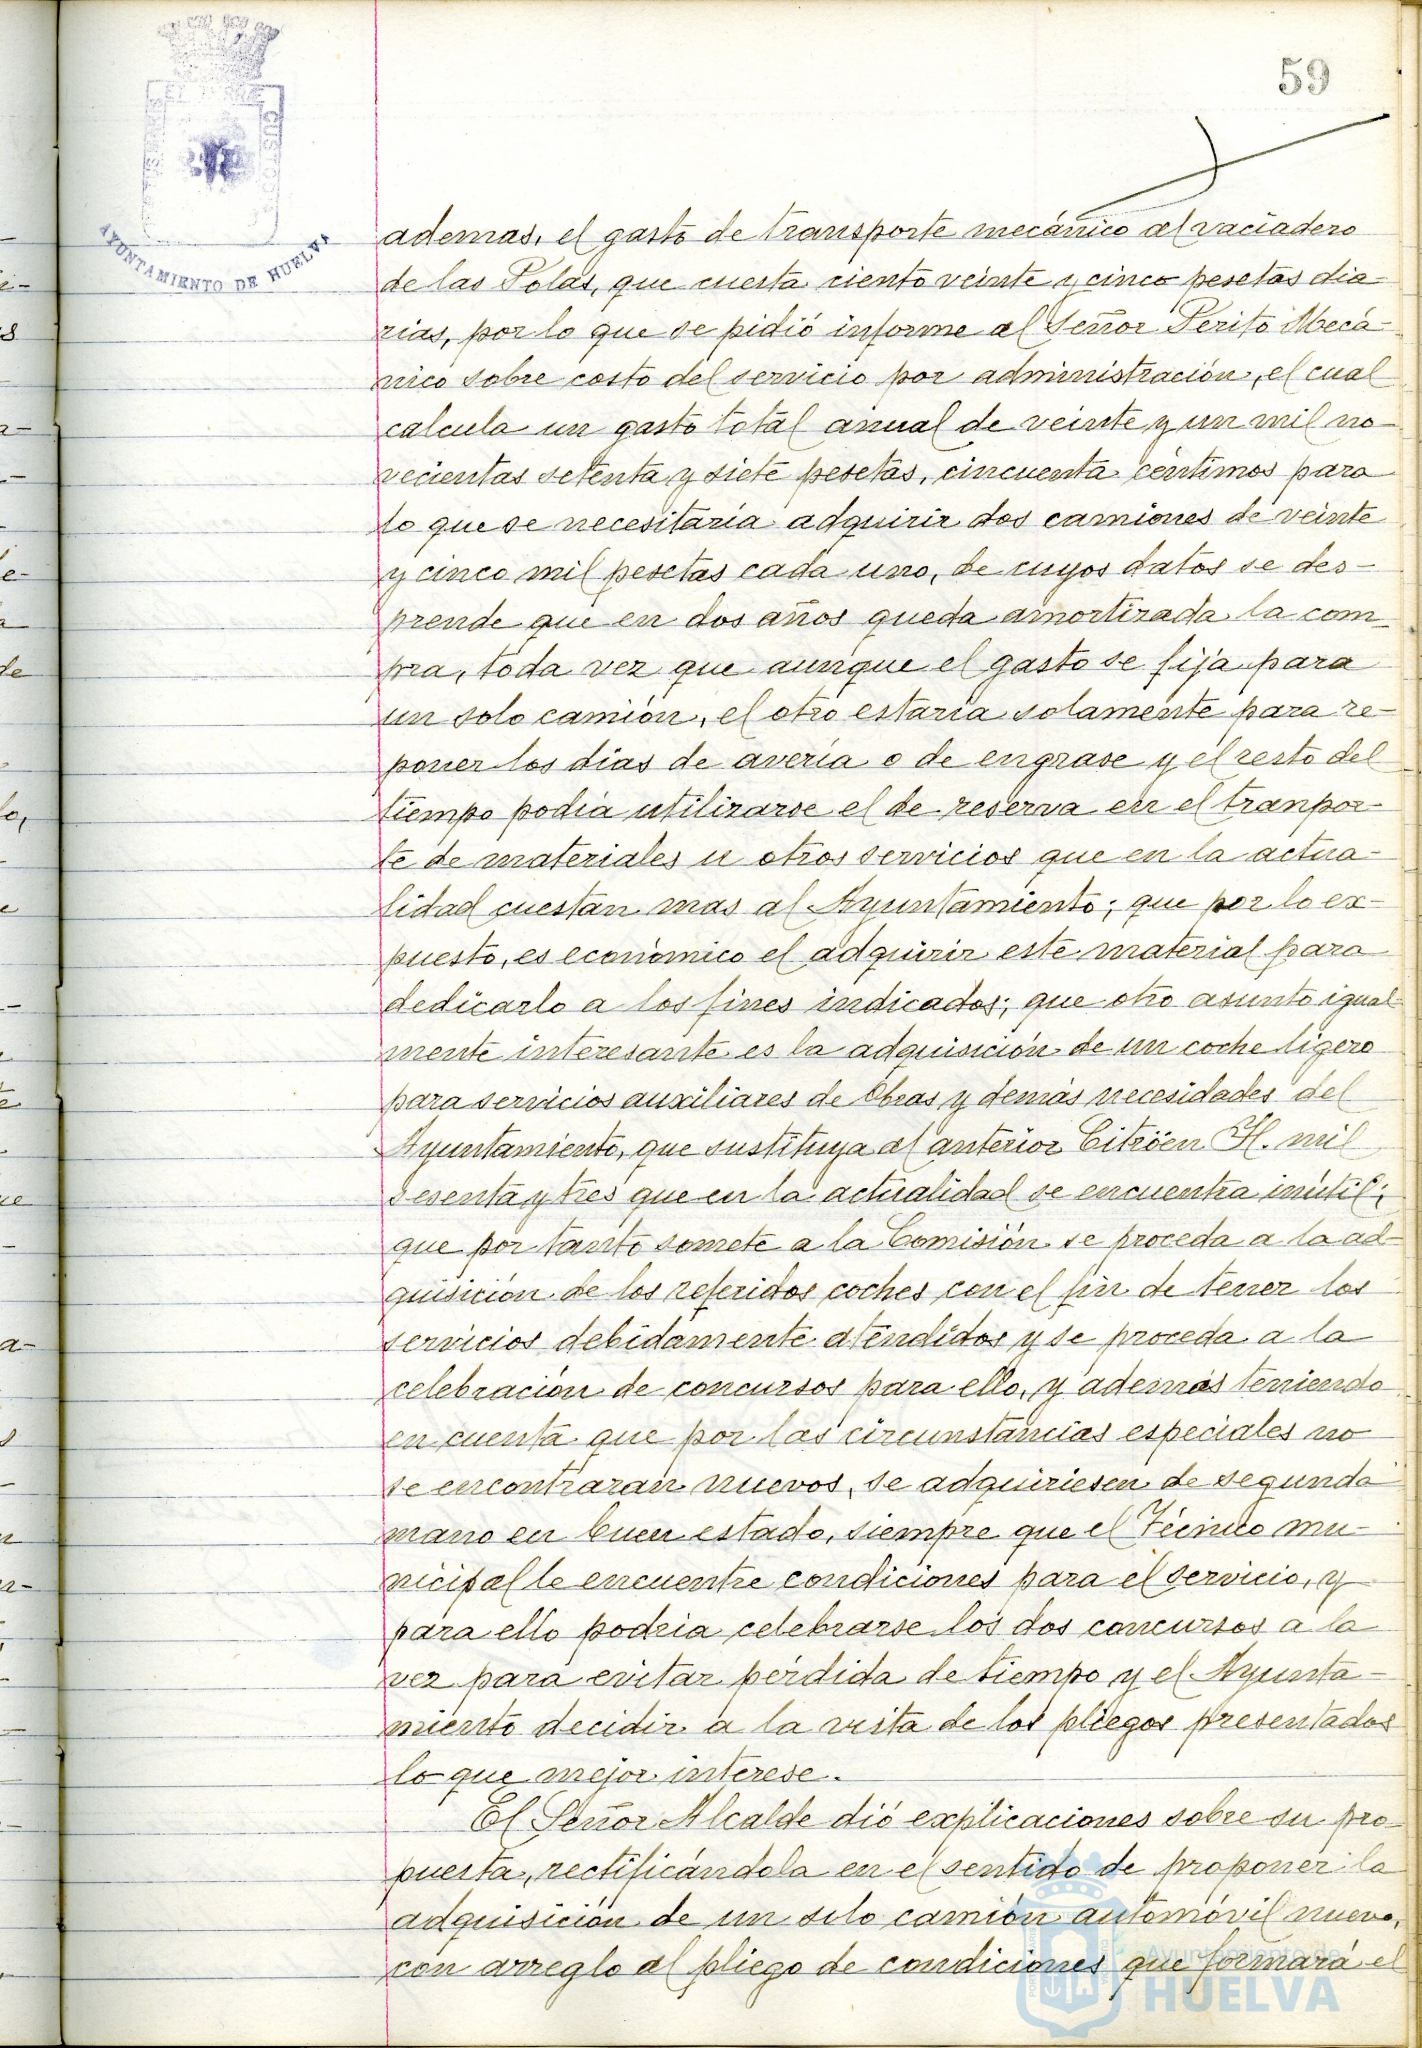 59
PORTUS MARIS ET TERRÆ CUSTODIA
AYUNTAMIENTO DE HUELVA
ademas, el gasto de transporte mecánico al vaciadero
de las Polas, que cuesta ciento veinte y cinco pesetas dia-
rias, por lo que se pidió informe al Señor Perito Mecá-
nico sobre costo del servicio por administración, el cual
calcula un gasto total anual de veinte y un mil no-
vecientas setenta y siete pesetas, cincuenta céntimos para
lo que se necesitaria adquirir dos camiones de veinte
y cinco mil pesetas cada uno, de cuyos datos se des-
prende que en dos años queda amortizada la com-
pra, toda vez que aunque el gasto se fija para
un solo camión, el otro estaria solamente para re-
poner los dias de avería o de engrase y el resto del
tiempo podia utilizarse el de reserva en el tranpor-
te de materiales u otros servicios que en la actua-
lidad cuestan mas al Ayuntamiento; que por lo ex-
puesto, es económico el adquirir este material para
dedicarlo a los fines indicados; que otro asunto igual-
mente interesante es la adquisición de un coche ligero
para servicios auxiliares de Obras y demás necesidades del
Ayuntamiento, que sustituya al anterior Citröen H. mil
sesenta y tres que en la actualidad se encuentra inútil;
que por tanto somete a la Comisión se proceda a la ad-
quisición de los referidos coches con el fin de tener los
servicios debidamente atendidos y se proceda a la
celebración de concursos para ello, y ademas teniendo
en cuenta que por las circunstancias especiales no
se encontraran nuevos, se adquiriesen de segunda
mano en buen estado, siempre que el Técnico mu-
nicipal le encuentre condiciones para el servicio, y
para ello podria celebrarse los dos concursos a la
vez para evitar pérdida de tiempo y el Ayunta-
miento decidir a la vista de los pliegos presentados
lo que mejor interese.
El Señor Alcalde dió explicaciones sobre su pro-
puesta, rectificándola en el sentido de proponer la
adquisición de un solo camión automóvil nuevo,
con arreglo al pliego de condiciones que formará el
Ayuntamiento de
HUELVA